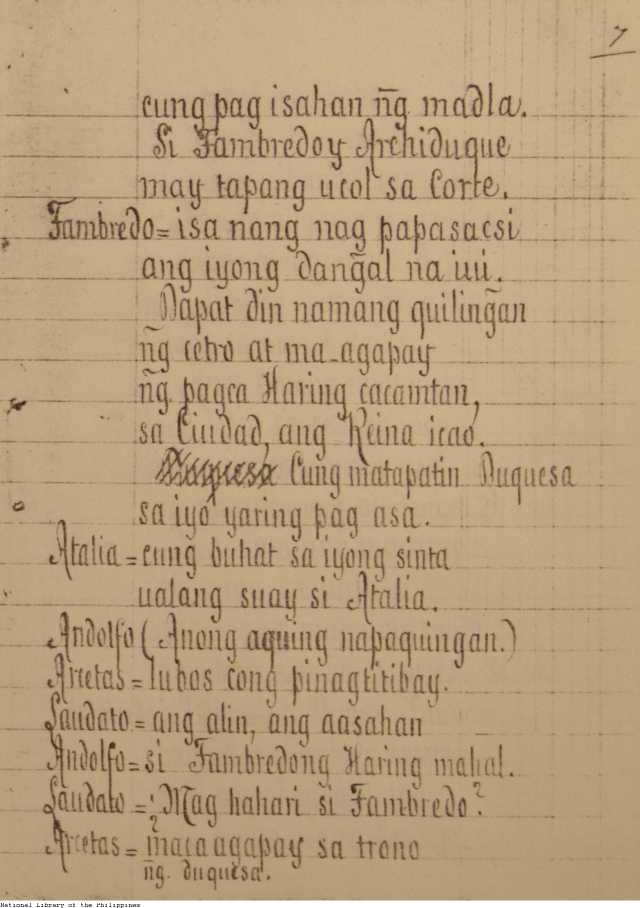 7
cung pag isahan n̄g madla.
Si Fambredoy Archiduque
may tapang ucol sa Corte.
Fambredo = isa nang nag papasacsi
ang iyong dan̄gal na iui.
Dapat din namang quilin̄gan
n̄g cetro at ma-agapay
n̄g pagca Haring cacamtan,
sa Ciudad, ang Reina icao.
Cung matapatin Duquesa
sa iyo yaring pag asa.
Atalia = cung buhat sa iyong sinta
ualang suay si Atalia.
Andolfo (Anong aquing napaquingan.)
Arcetas = lubos cong pinagtitibay.
Laudato = ang alin, ang aasahan
Andolfo = si Fambredong Haring mahal.
Laudato = ¿Mag hahari si Fambredo?
Arcetas = macaagapay sa trono
n̄g. duquesa.
National Library of the Philippines